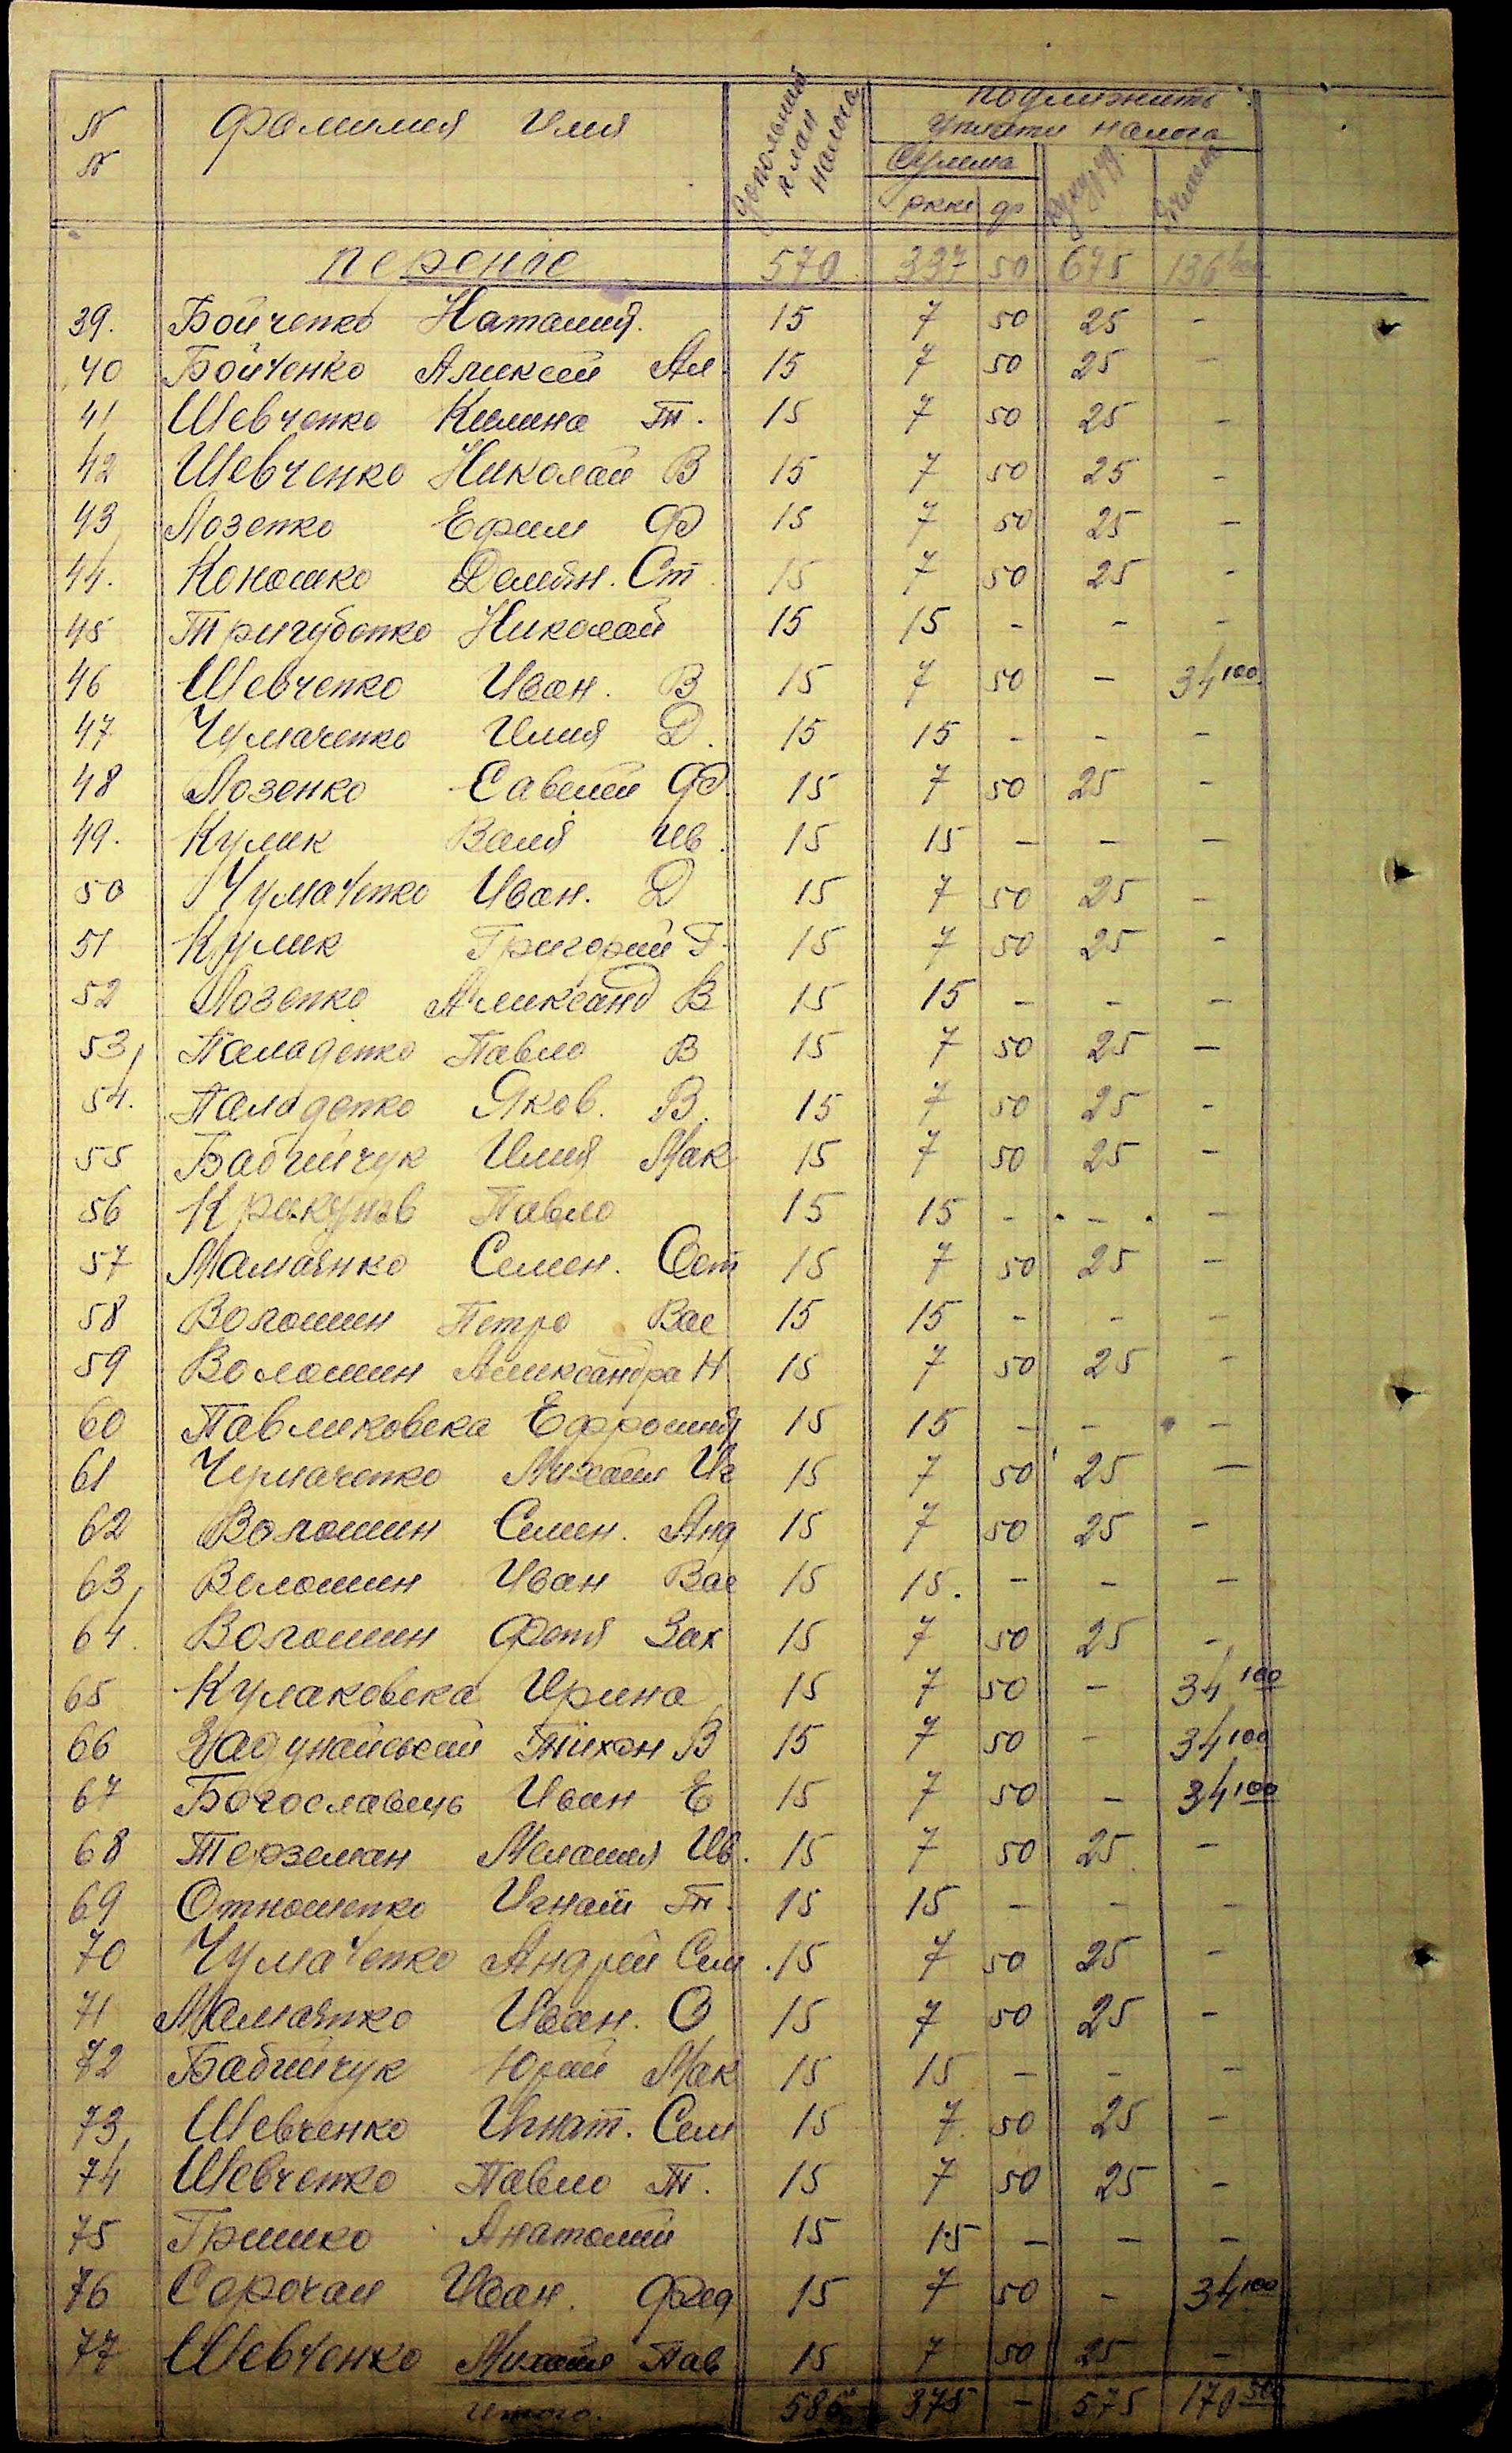 N N Фамилия Имя Допольный план налога подлижить
уплати налога
Сумма кукурудз. Ячмень
ркки ф
переное 570 337 50 675 136 400
39. Бойченко Наталия. 15 7 50 25 -
40 Бойченко Аликсей Ал 15 7 50 25 -
41 Шевченко Килина Т. 15 7 50 25 -
42 Шевченко Николай В 15 7 50 25 -
43 Лозенко Ефим Ф 15 7 50 25 -
44. Коношко Демян. Ст 15 7 50 25 -
45 Тригубенко Николай 15 15 - - -
46 Шевченко Иван. В 15 7 50 - 34 100
47 Чумаченко Илия Д. 15 15 - - -
48 Лозенко Савелий Ф 15 7 50 25 -
49. Кулик Валя Ив. 15 15 - - -
50 Чумаченко Иван. Д 15 7 50 25 -
51 Кулик Григорий Г. 15 7 50 25 -
52 Лозенко Алиександ В 15 15 - - -
53, Паладенко Павло В 15 7 50 25 -
54. Паладенко Яков. В. 15 7 50 25 -
55 Бабийчук Илия Мак 15 7 50 25 -
56 Кракунов Павло 15 15 - - -
57 Маматнко Семен. Ост 15 7 50 25 -
58 Волошин Петро Вас 15 15 - - -
59 Волошин Алиександра Н 15 7 50 25 -
60 Павликовска Ефросиния 15 15 - - -
61 Чумаченко Михаил Иг 15 7 50 25 -
62 Волошин Семен. Анд 15 7 50 25 -
63, Волошин Иван Вас 15 15. - - -
64. Волошин Фотя Зах 15 7 50 25 -
65 Кулаковска Ирина 15 7 50 - 34 100
66 Задунайский Тихон В 15 7 50 - 34 100
67 Богославець Иван Е 15 7 50 - 34 100
68 Терземан Мелания Ив. 15 7 50 25 -
69 Отношенко Игнат Т. 15 15 - - -
70 Чумаченко Андрей Сем. 15 7 50 25 -
71 Маматнко Иван. О 15 7 50 25 -
72 Бабийчук Юрий Мак 15 15 - - -
73, Шевченко Игнат. Сем 15 7 50 25 -
74 Шевченко Павло Т. 15 7 50 25 -
75 Гришко Анатолий 15 15 - - -
76 Сорочан Иван. Фед 15 7 50 - 34 100
77 Шевченко Михаил Пав 15 7 50 25 -
итого. 585 375 - 575 170 500